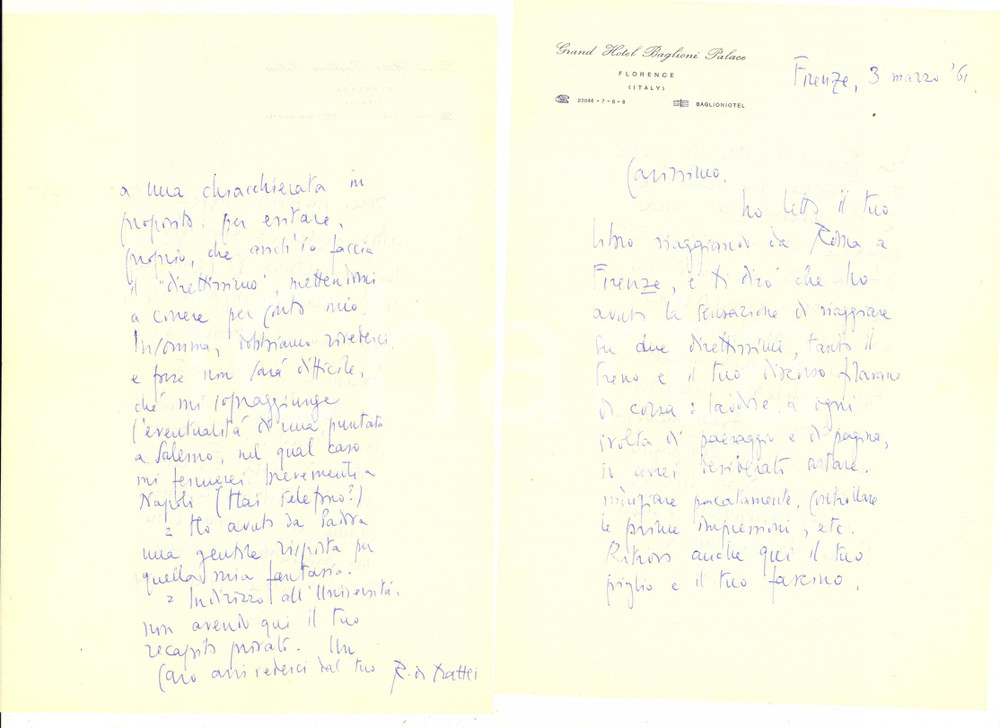 Grand Hotel Baglioni Palace
FLORENCE
(ITALY)
23846 - 7 - 8 - 9
BAGLIONIOTEL
Firenze, 3 marzo '61
Carissimo,
ho letto il tuo
libro viaggiando da Roma a
Firenze, e ti dirò che ho
avuto la sensazione di viaggiare
su due direttissimi, tanto il
treno e il tuo discorso filavano
di corsa: laddove, a ogni
svolta di paesaggio e di pagina,
io avrei desiderato sostare,
indugiare pacatamente, controllare
le prime impressioni, etc.
Ritrovo anche qui il tuo
piglio e il tuo fascino,
a una chiacchierata in
proposito per evitare,
proprio, che anch'io faccia
il "direttissimo", mettendomi
a correre per conto mio.
Insomma, dobbiamo rivederci.
e forse non sarà difficile,
ché mi sopraggiunge
l'eventualità di una puntata
a Salerno, nel qual caso
mi fermerei brevemente a
Napoli (Hai telefono?)
= Ho avuto da Padova
una gentile risposta per
quella mia fantasia.
= Indirizzo all'Università,
non avendo qui il tuo
recapito privato. Un
caro arrivederci dal tuo R. di Mattei